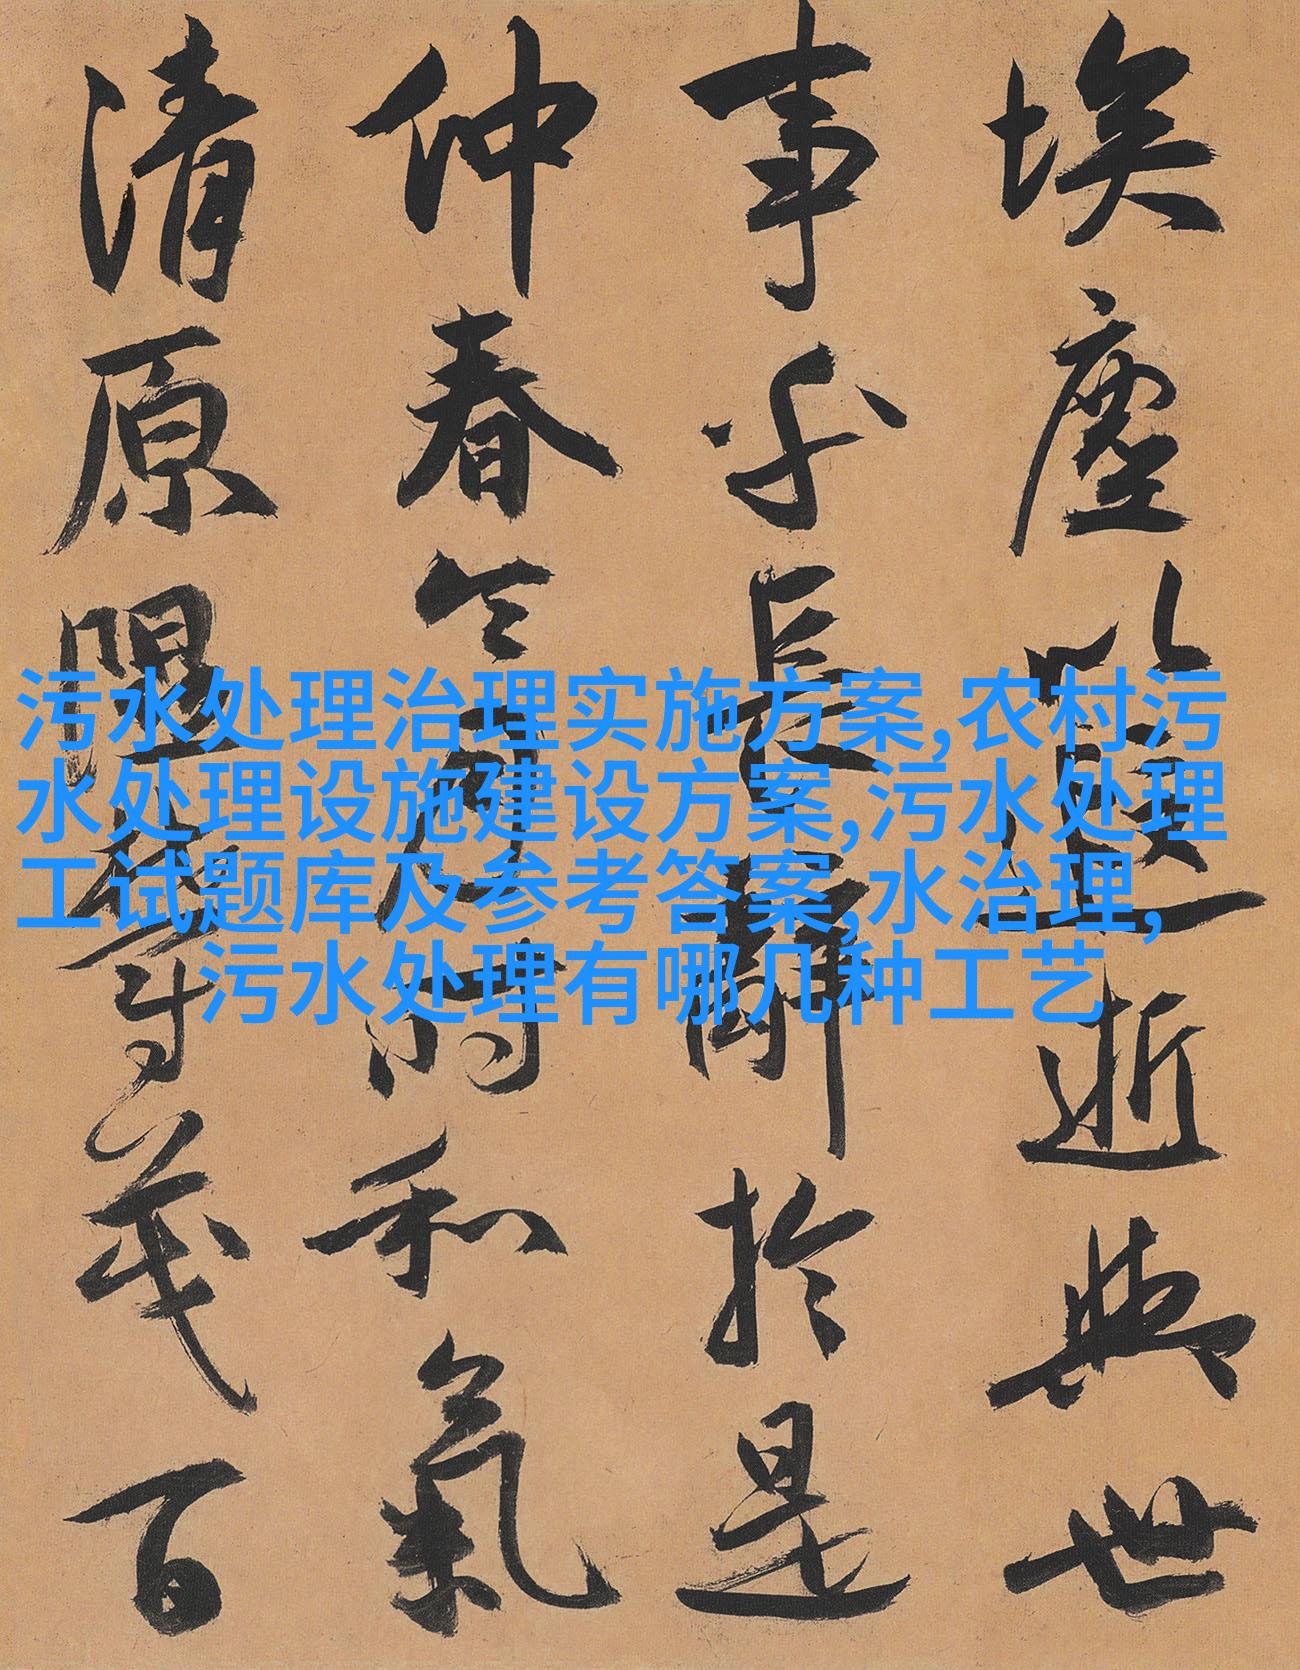 埃塵以遐逝與世
事乎長辭於是
仲春令月時和氣
清原隰鬱茂百
污水处理治理实施方案,农村污
水处理设施建设方案,污水处理
工试题库及参考答案,水治理,
污水处理有哪几种工艺